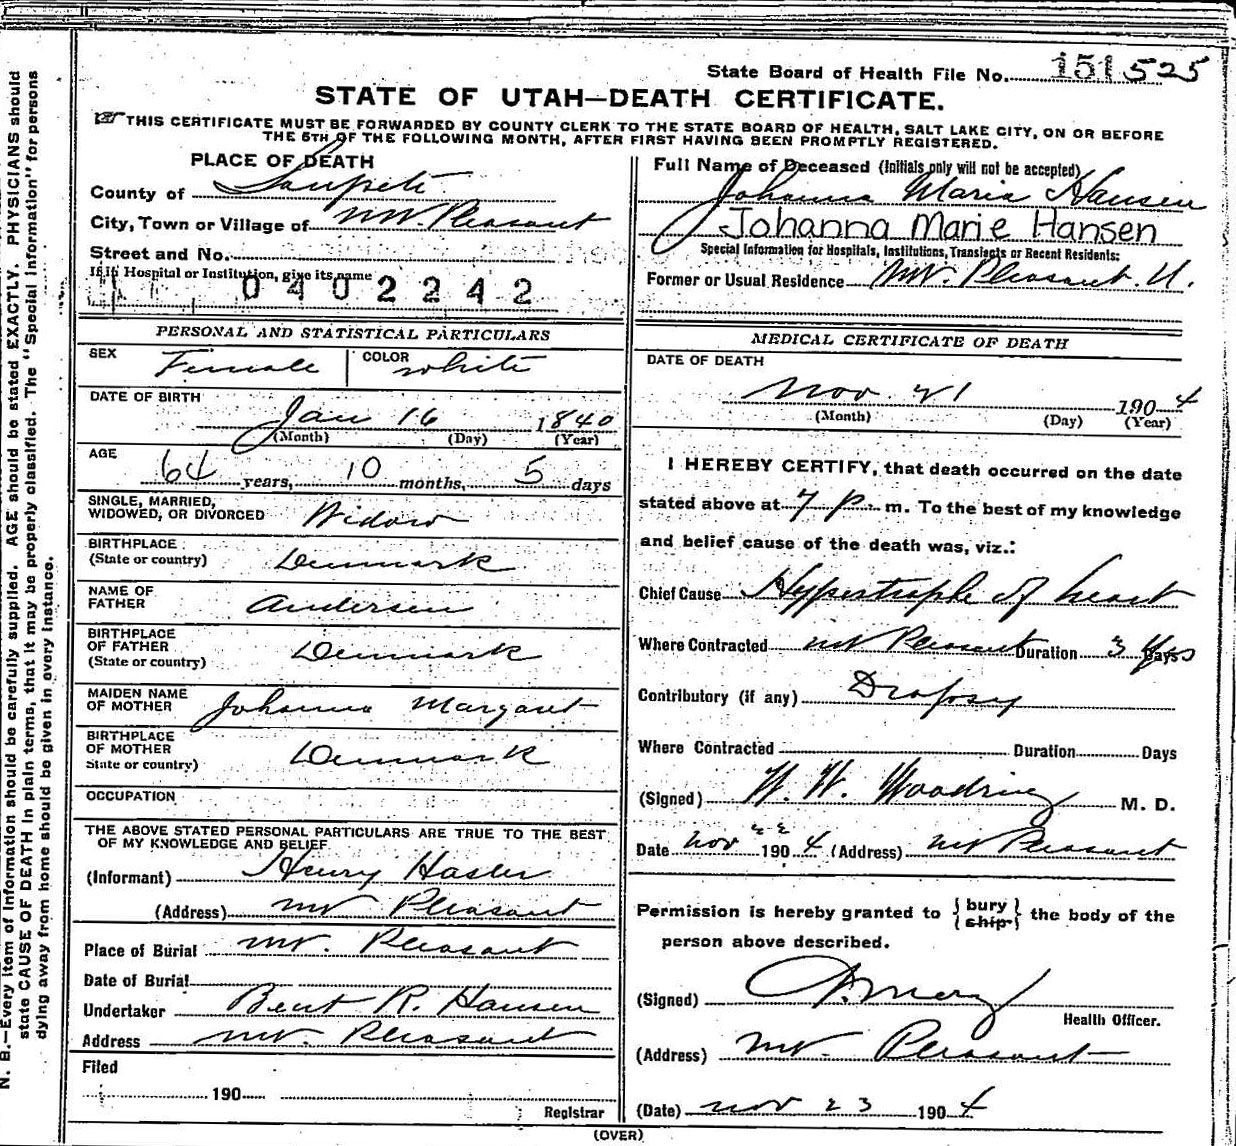 State Board of Health File No. 151525
STATE OF UTAH—DEATH CERTIFICATE.
THIS CERTIFICATE MUST BE FORWARDED BY COUNTY CLERK TO THE STATE BOARD OF HEALTH, SALT LAKE CITY, ON OR BEFORE
THE 5TH OF THE FOLLOWING MONTH, AFTER FIRST HAVING BEEN PROMPTLY REGISTERED.
PLACE OF DEATH
County of Sanpete
City, Town or Village of Mt. Pleasant
Street and No.
If in Hospital or Institution, give its name
0402242
Full Name of Deceased (Initials only will not be accepted)
Johanna Maria Hansen
Johanna Marie Hansen
Special Information for Hospitals, Institutions, Transients or Recent Residents:
Former or Usual Residence Mt. Pleasant. U.
PERSONAL AND STATISTICAL PARTICULARS
SEX Female COLOR White
DATE OF BIRTH
Jan 16 1840
(Month) (Day) (Year)
AGE
64 years, 10 months, 5 days
SINGLE, MARRIED,
WIDOWED, OR DIVORCED Widow
BIRTHPLACE
(State or country) Denmark
NAME OF
FATHER Andersen
BIRTHPLACE
OF FATHER
(State or country) Denmark
MAIDEN NAME
OF MOTHER Johanna Margaret
BIRTHPLACE
OF MOTHER
State or country) Denmark
OCCUPATION
THE ABOVE STATED PERSONAL PARTICULARS ARE TRUE TO THE BEST
OF MY KNOWLEDGE AND BELIEF
(Informant) Henry Hasler
(Address) Mt Pleasant
Place of Burial Mt. Pleasant
Date of Burial
Undertaker Bent R. Hansen
Address Mt. Pleasant
Filed
190
Registrar
MEDICAL CERTIFICATE OF DEATH
DATE OF DEATH
Nov. 21 1904
(Month) (Day) (Year)
I HEREBY CERTIFY, that death occurred on the date
stated above at 7 P. m. To the best of my knowledge
and belief cause of the death was, viz.:
Chief Cause Hypertrophe of heart
Where Contracted Mt Pleasant Duration 3 Yrs Days
Contributory (if any) Dropsy
Where Contracted Duration Days
(Signed) W. W. Woodring M. D.
Date Nov 22 1904 (Address) Mt Pleasant
Permission is hereby granted to { bury / ship } the body of the
person above described.
(Signed)
Health Officer.
(Address) Mt. Pleasant
(Date) Nov 23 1904
(OVER)
N. B.—Every item of Information should be carefully supplied. AGE should be stated EXACTLY. PHYSICIANS should
state CAUSE OF DEATH In plain terms, that it may be properly classified. The "Special Information" for persons
dying away from home should be given in every instance.